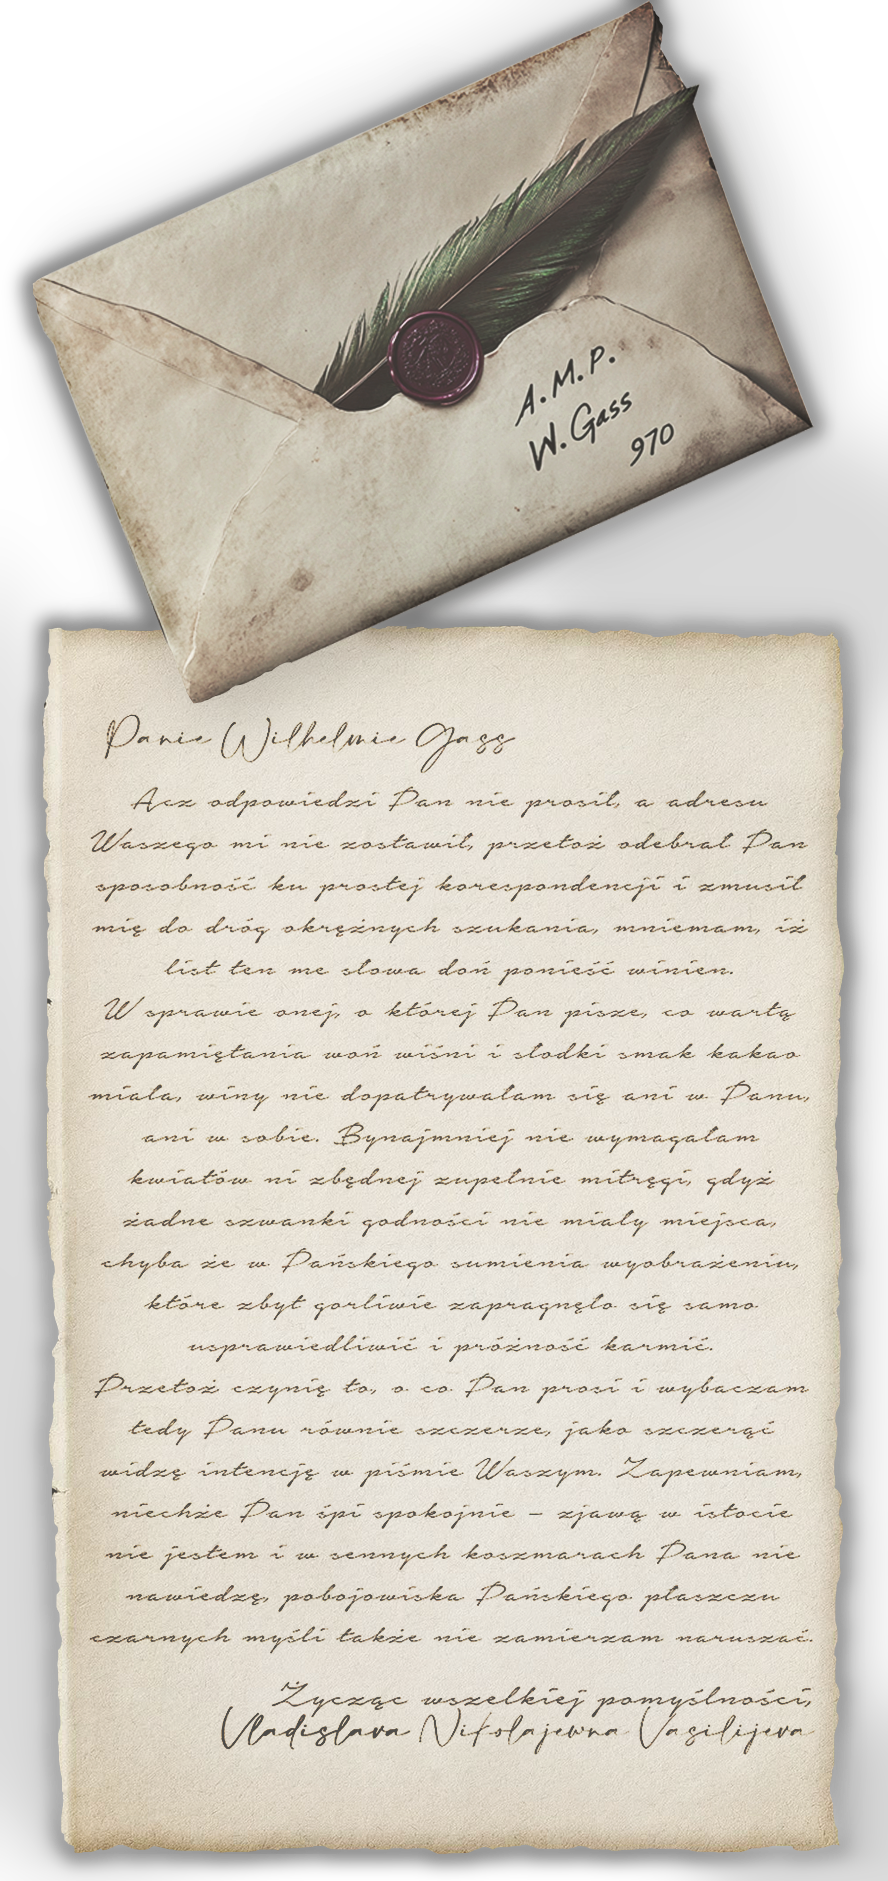 A.M.P.
W.Gass
970
Panie Wilhelmie Gass
Acz odpowiedzi Pan nie prosił, a adresu
Waszego mi nie zostawił, przetoż odebrał Pan
sposobność ku prostej korespondencji i zmusił
mię do dróg okrężnych szukania, mniemam, iż
list ten me słowa doń ponieść winien.
W sprawie onej, o której Pan pisze, co wartą
zapamiętania woń wiśni i słodki smak kakao
miała, winy nie dopatrywałam się ani w Panu,
ani w sobie. Bynajmniej nie wymagałam
kwiatów ni zbędnej zupełnie mitręgi, gdyż
żadne szwanki godności nie miały miejsca,
chyba że w Pańskiego sumienia wyobrażeniu,
które zbyt gorliwie zapragnęło się samo
usprawiedliwić i próżność karmić.
Przetoż czynię to, o co Pan prosi i wybaczam
tedy Panu równie szczerze, jako szczerąć
widzę intencję w piśmie Waszym. Zapewniam,
niechże Pan śpi spokojnie – zjawą w istocie
nie jestem i w sennych koszmarach Pana nie
nawiedzę, pobojowiska Pańskiego płaszczu
czarnych myśli także nie zamierzam naruszać.
Życząc wszelkiej pomyślności,
Vladislava Nikolajewna Vasilijeva